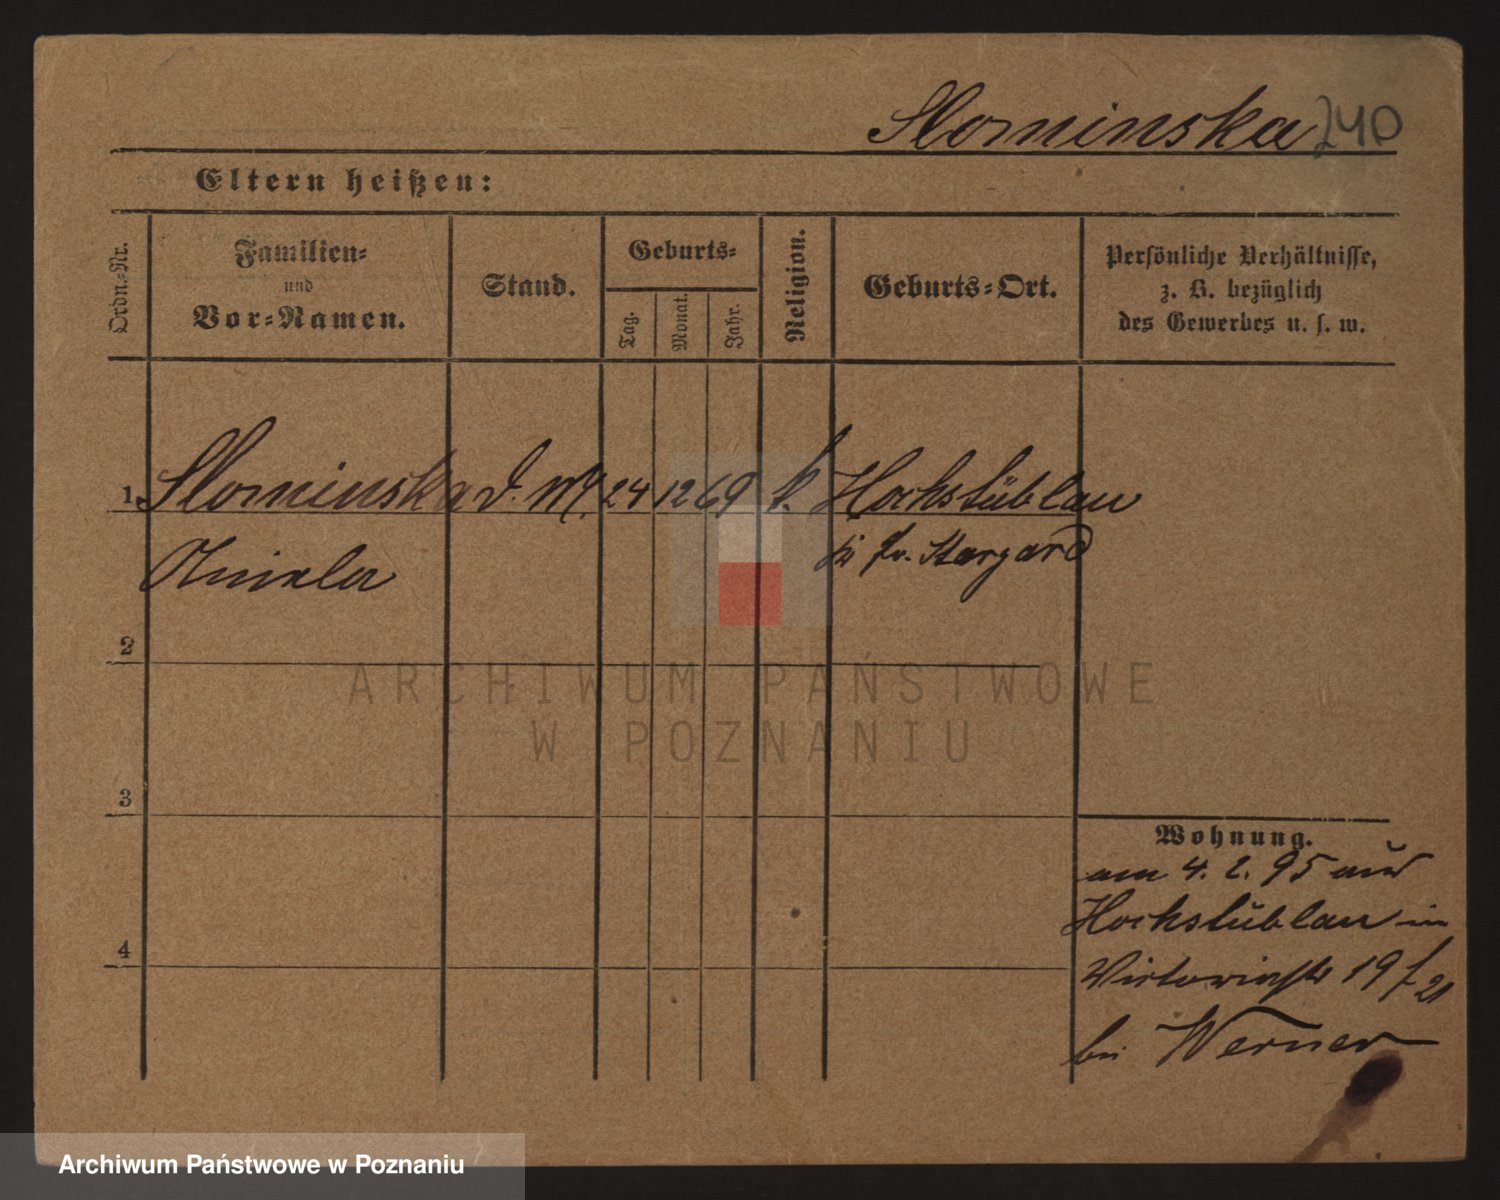 Slominska 240
Eltern heißen:
Ordn.-Nr.
Familien-
und
Vor-Namen.
Stand.
Geburts-
Tag.
Monat.
Jahr.
Religion.
Geburts-Ort.
Persönliche Verhältnisse,
z. B. bezüglich
des Gewerbes u. s. w.
1. Slominska d. M. 24 12 69 k. Hochstüblau
Kr Pr. Stargard
Aniela
2
3
4
Wohnung.
am 4. 2. 95 aus
Hochstüblau in
Victoriastr 19/21
bei Werner
ARCHIWUM PAŃSTWOWE
W POZNANIU
Archiwum Państwowe w Poznaniu